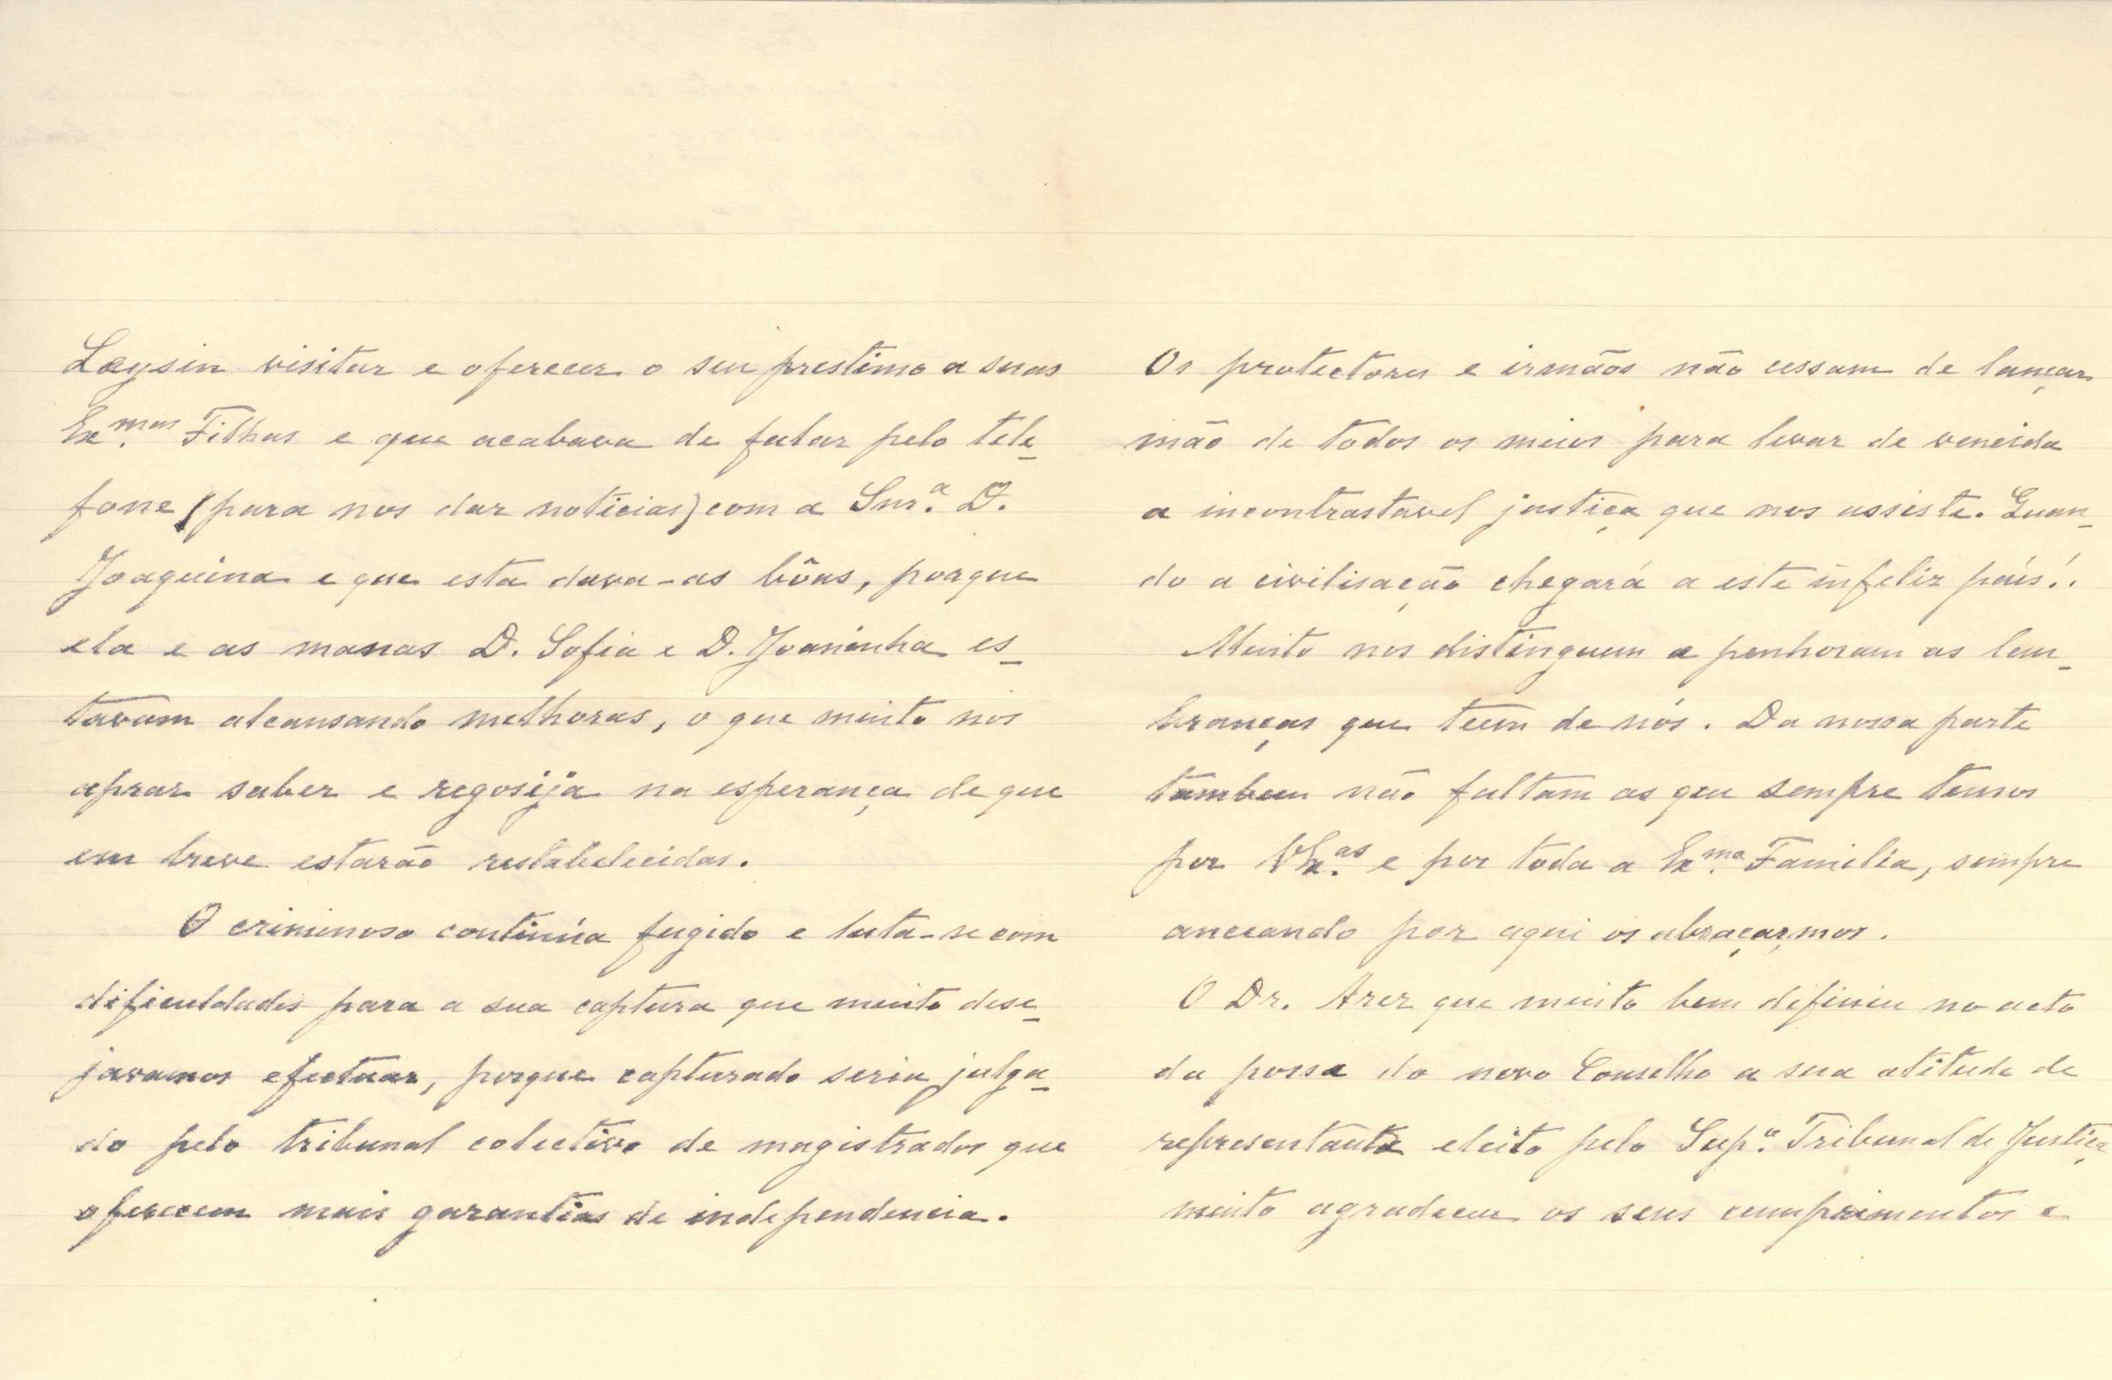 Leysin visitar e oferecer o seu prestimo a suas
Ex.mas Filhas e que acabava de falar pelo tele-
fone (para nos dar noticias) com a Snr.a D.
Joaquina e que esta dava-as bôas, porque
ela e as manas D. Sofia e D. Joaninha es-
tavam alcansando melhoras, o que muito nos
apraz saber e regosija na esperança de que
em breve estarão restabelecidas.
O criminoso continúa fugido e luta-se com
dificuldades para a sua captura que muito dese-
javamos efectuar, porque capturado seria julga-
do pelo tribunal colectivo de magistrados que
oferecem mais garantias de independencia.
Os protectores e irmãos não cessam de lançar
mão de todos os meios para levar de vencida
a incontrastavel justiça que nos assiste. Quan-
do a civilisação chegará a este infeliz país!.
Muito nos distinguem e penhoram as lem-
branças que teem de nós. Da nossa parte
tambem não faltam as que sempre temos
por VEx.as e por toda a Ex.ma Familia, sempre
anceando por aqui os abraçarmos.
O Dr. Arez que muito bem definiu no acto
da posse do novo Conselho a sua atitude de
representante eleito pelo Sup.o Tribunal de Justiça
muito agradece os seus cumprimentos e